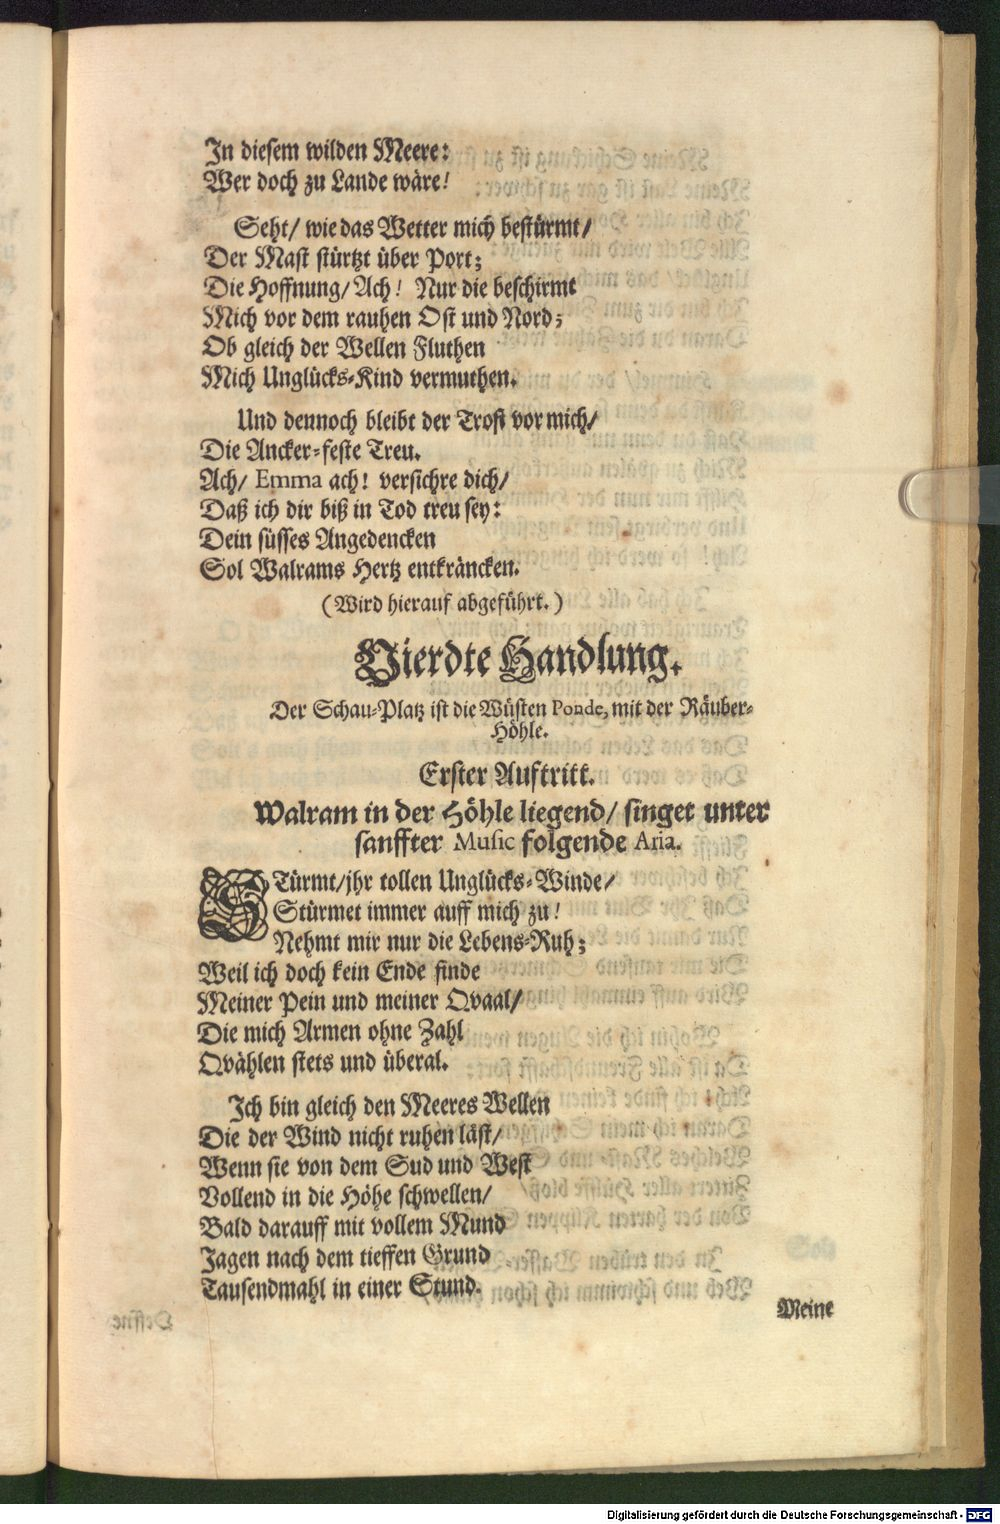 In diesem wilden Meere:
Wer doch zu Lande wäre!
Seht/ wie das Wetter mich bestürmt/
Der Mast stürtzt über Port;
Die Hoffnung/ Ach! Nur die beschirmt
Mich vor dem rauhen Ost und Nord;
Ob gleich der Wellen Fluthen
Mich Unglücks-Kind vermuthen.
Und dennoch bleibt der Trost vor mich/
Die Ancker-feste Treu.
Ach/ Emma ach! versichre dich/
Daß ich dir biß in Tod treu sey:
Dein süsses Angedencken
Sol Walrams Hertz entkräncken.
(Wird hierauf abgeführt.)
Vierdte Handlung.
Der Schau-Platz ist die Wüsten Ponde, mit der Räuber-
Höhle.
Erster Auftritt.
Walram in der Höhle liegend/ singet unter
sanffter Music folgende Aria.
STürmt/ jhr tollen Unglücks-Winde/
Stürmet immer auff mich zu!
Nehmt mir nur die Lebens-Ruh;
Weil ich doch kein Ende finde
Meiner Pein und meiner Qvaal/
Die mich Armen ohne Zahl
Qvählen stets und überal.
Ich bin gleich den Meeres Wellen
Die der Wind nicht ruhen läst/
Wenn sie von dem Sud und West
Vollend in die Höhe schwellen/
Bald darauff mit vollem Mund
Jagen nach dem tieffen Grund
Tausendmahl in einer Stund.
Meine
Digitalisierung gefördert durch die Deutsche Forschungsgemeinschaft - DFG